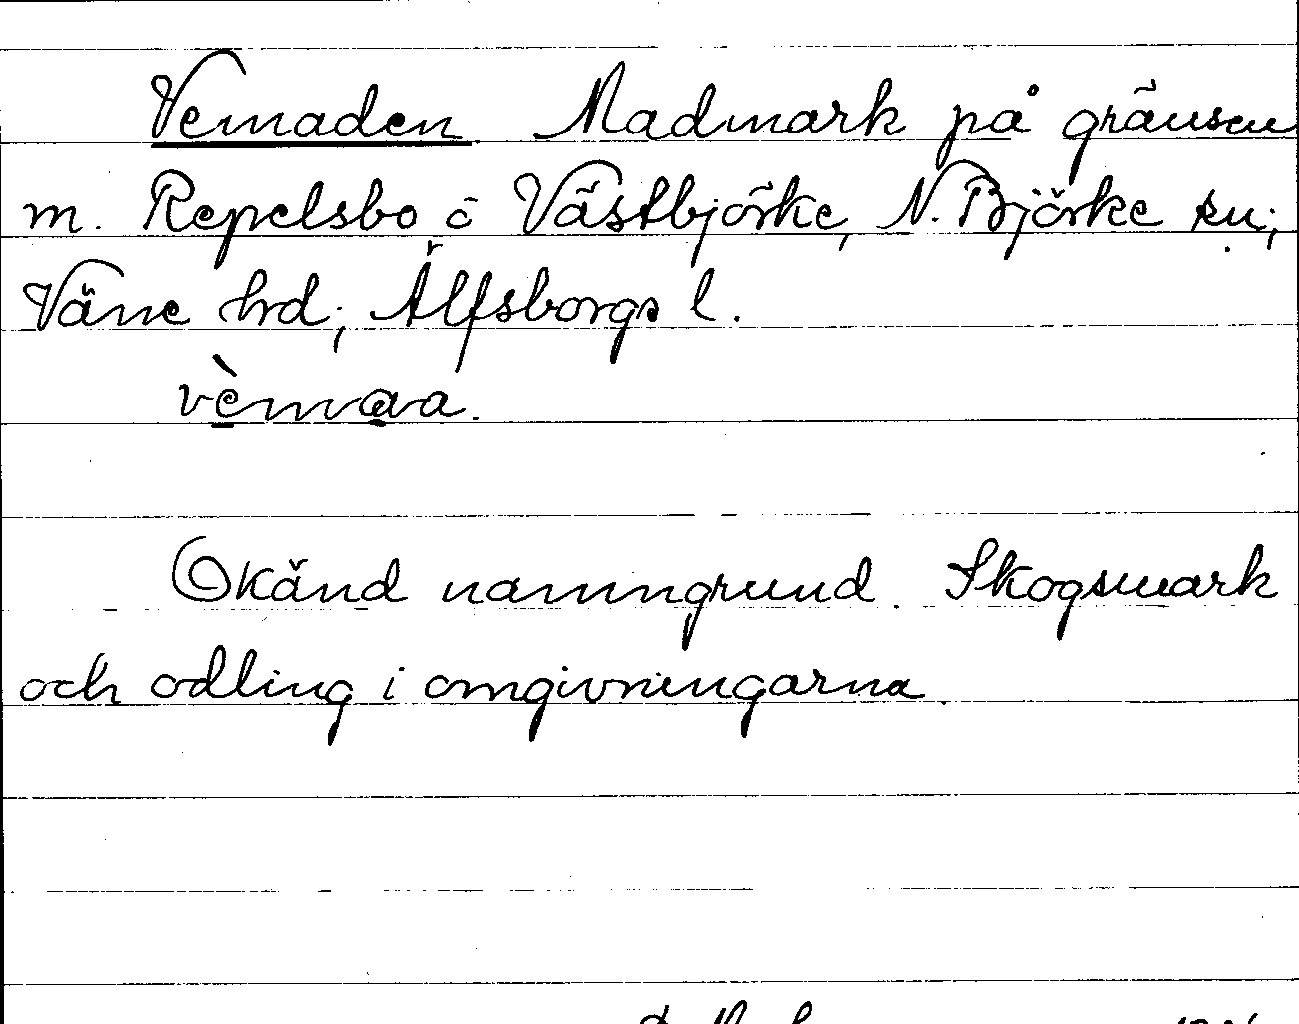 Vemaden Madmark på gränsen
m. Repelsbo o Västbjörke, N. Björke sn;
Väne hrd; Älfsborgs l.
vèmaa.
Okänd namngrund. Skogsmark
och odling i omgivningarna.